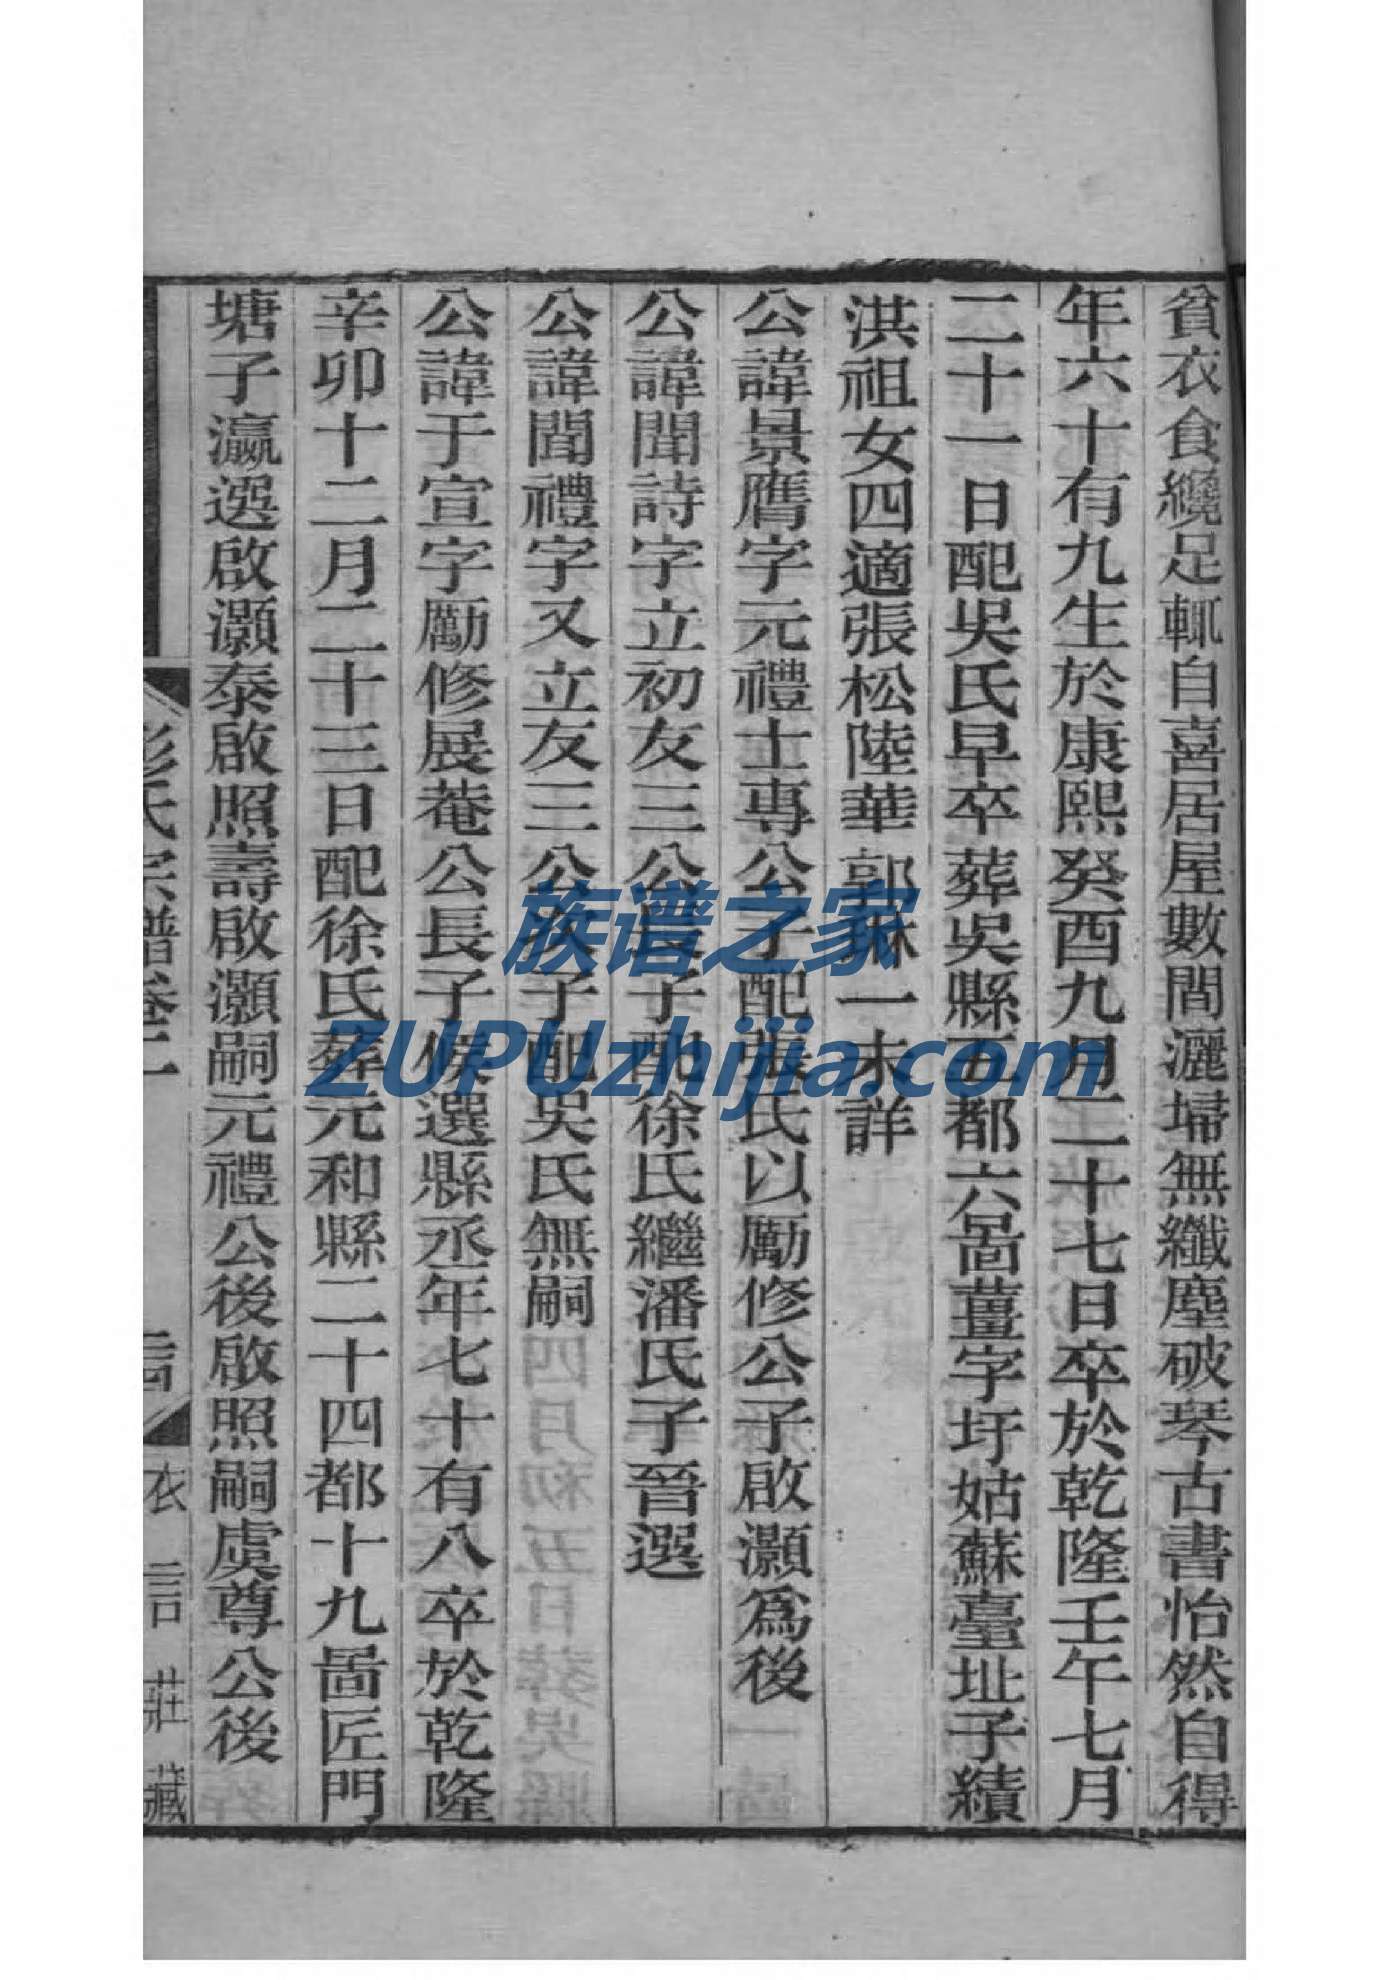 貧衣食纔足輒自喜居屋數間灑埽無纖塵破琴古書怡然自得
年六十有九生於康熙癸酉九月二十七日卒於乾隆壬午七月
二十一日配吳氏早卒葬吳縣五都六啚薑字圩姑蘇臺址子績
洪祖女四適張松陸華郭琳一未詳
公諱景膺字元禮士專公子配張氏以勵修公子啟灝爲後
公諱聞詩字立初友三公長子配徐氏繼潘氏子晉選
公諱聞禮字又立友三公次子配吳氏無嗣
公諱于宣字勵修展菴公長子候選縣丞年七十有八卒於乾隆
辛卯十二月二十三日配徐氏葬元和縣二十四都十九啚匠門
塘子瀛選啟灝泰啟照壽啟灝嗣元禮公後啟照嗣虞尊公後
彭氏宗譜卷二
衣言莊藏
族谱之家
ZUPUzhijia.com